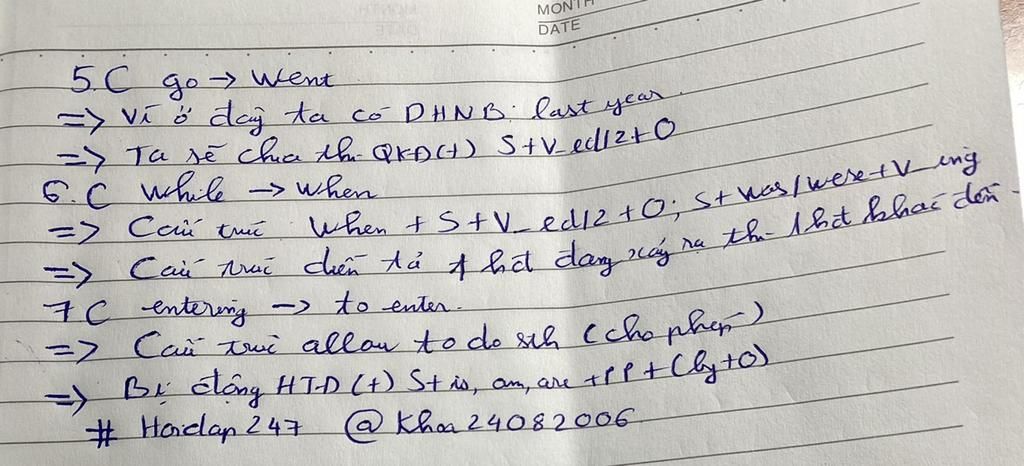 MONTH
DATE
5.C go → Went
=> Vì ở đây ta có DHNB: last year.
=> Ta sẽ chia thì QKĐ(+) S+V_ed/2+O
6.C While → when
=> Cấu trúc When + S+V_ed/2+O; S+was/were+V_ing
=> Cấu trúc diễn tả 1 hđ đang xảy ra thì 1 hđ khác đến
7 C entering → to enter.
=> Cấu trúc allow to do sth (cho phép)
=> Bị động HTĐ (+) S+is, am, are +PP+(by+O)
# Hoidap247 @Khoa24082006